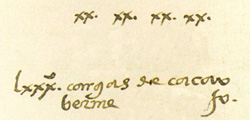 xx. xx. xx. xx.
lxxx. cargas de cacao
berme fo.